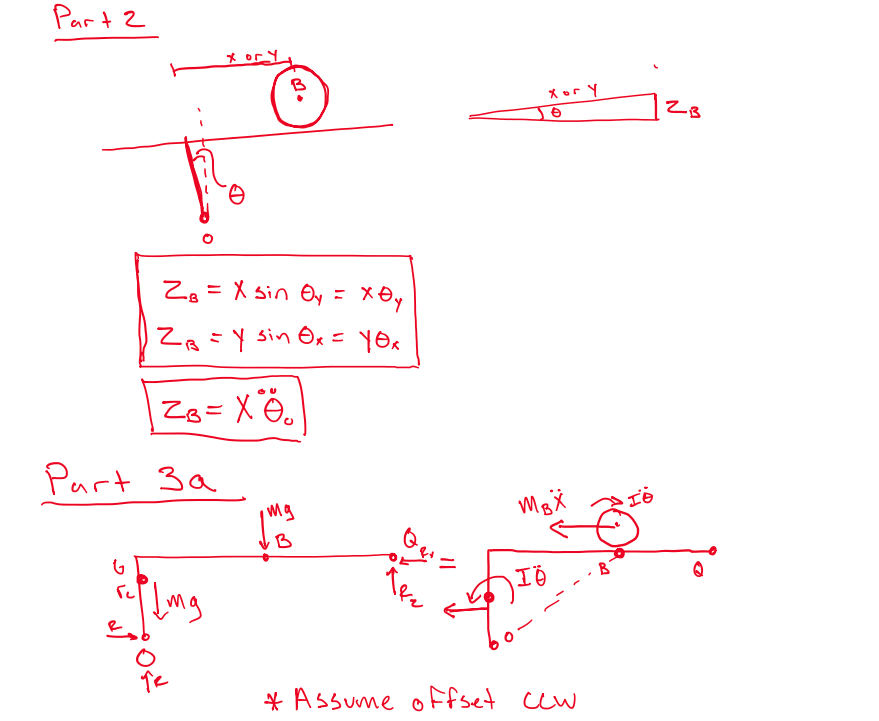 Part 2
x or y
B
x or y
θ
Z_B
θ
o
Z_B = x sin θ_y = xθ_y
Z_B = y sin θ_x = yθ_x
Z_B = x θ̈_o
Part 3a
mg
B
G
r_c
mg
R
O
R
Q
=
R_z
M_B ẍ
I θ̈
B
Q
I θ̈
O
* Assume offset CCW